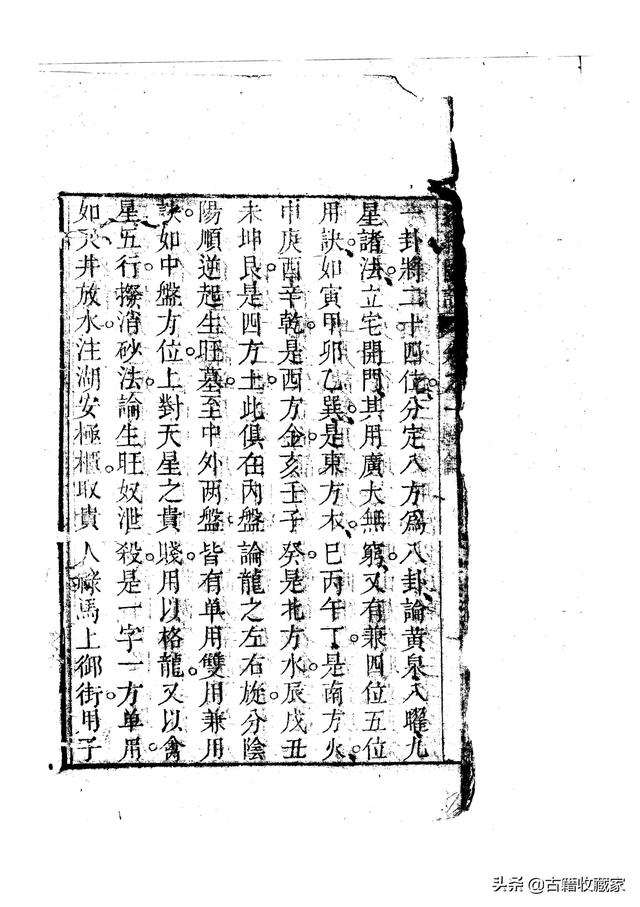 一卦將二十四位分定八方為八卦論黃泉八曜九
星諸法立宅開門其用廣大無窮又有兼四位五位
用訣如寅甲卯乙巽是東方木巳丙午丁是南方火
申庚酉辛乾是西方金亥壬子癸是北方水辰戌丑
未坤艮是四方土此俱在內盤論龍之左右旋分陰
陽順逆起生旺墓至中外两盤皆有单用雙用兼用
訣如中盤方位上對天星之貴賤用以格龍又以禽
星五行撥消砂法論生旺奴泄殺是一字一方单用
如天井放水注湖安極櫃取貴人祿馬上御街用子
头条 @古籍收藏家